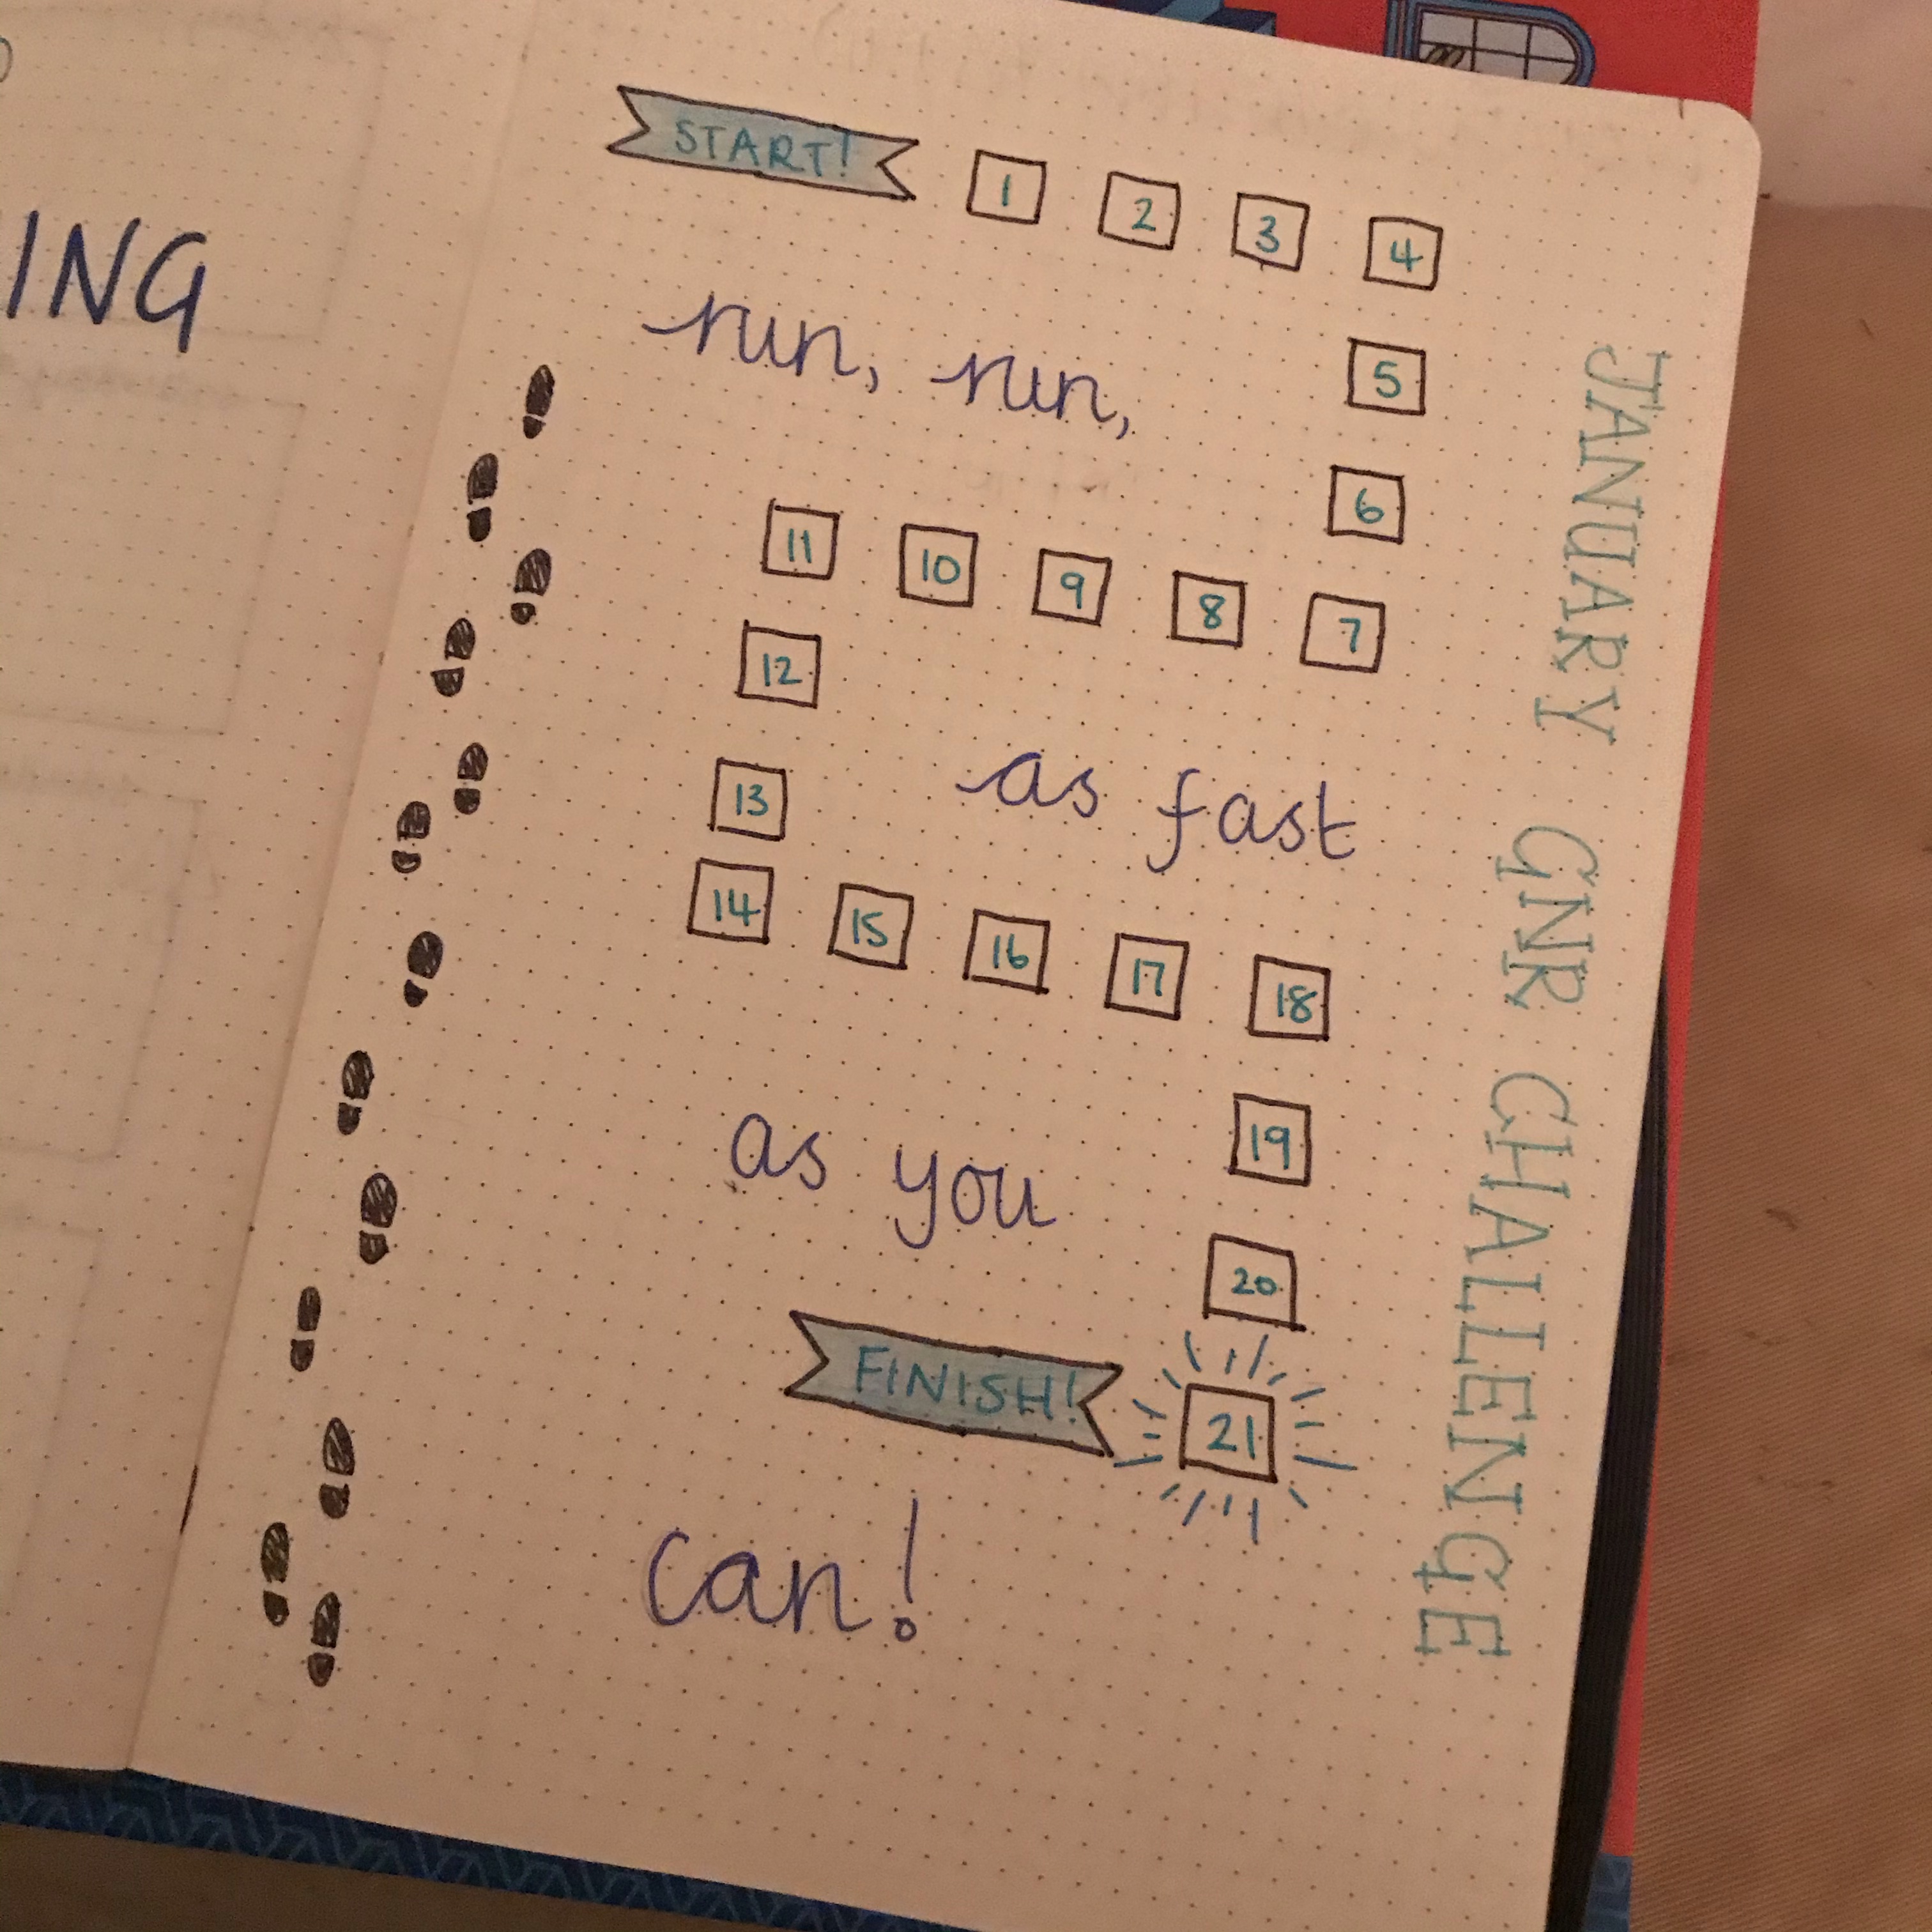 ING
START! 1 2 3 4
run, run,
5
6
11 10 9 8 7
12
as fast
13
14 15 16 17 18
as you
19
20
FINISH! 21
can!
JANUARY GNR CHALLENGE